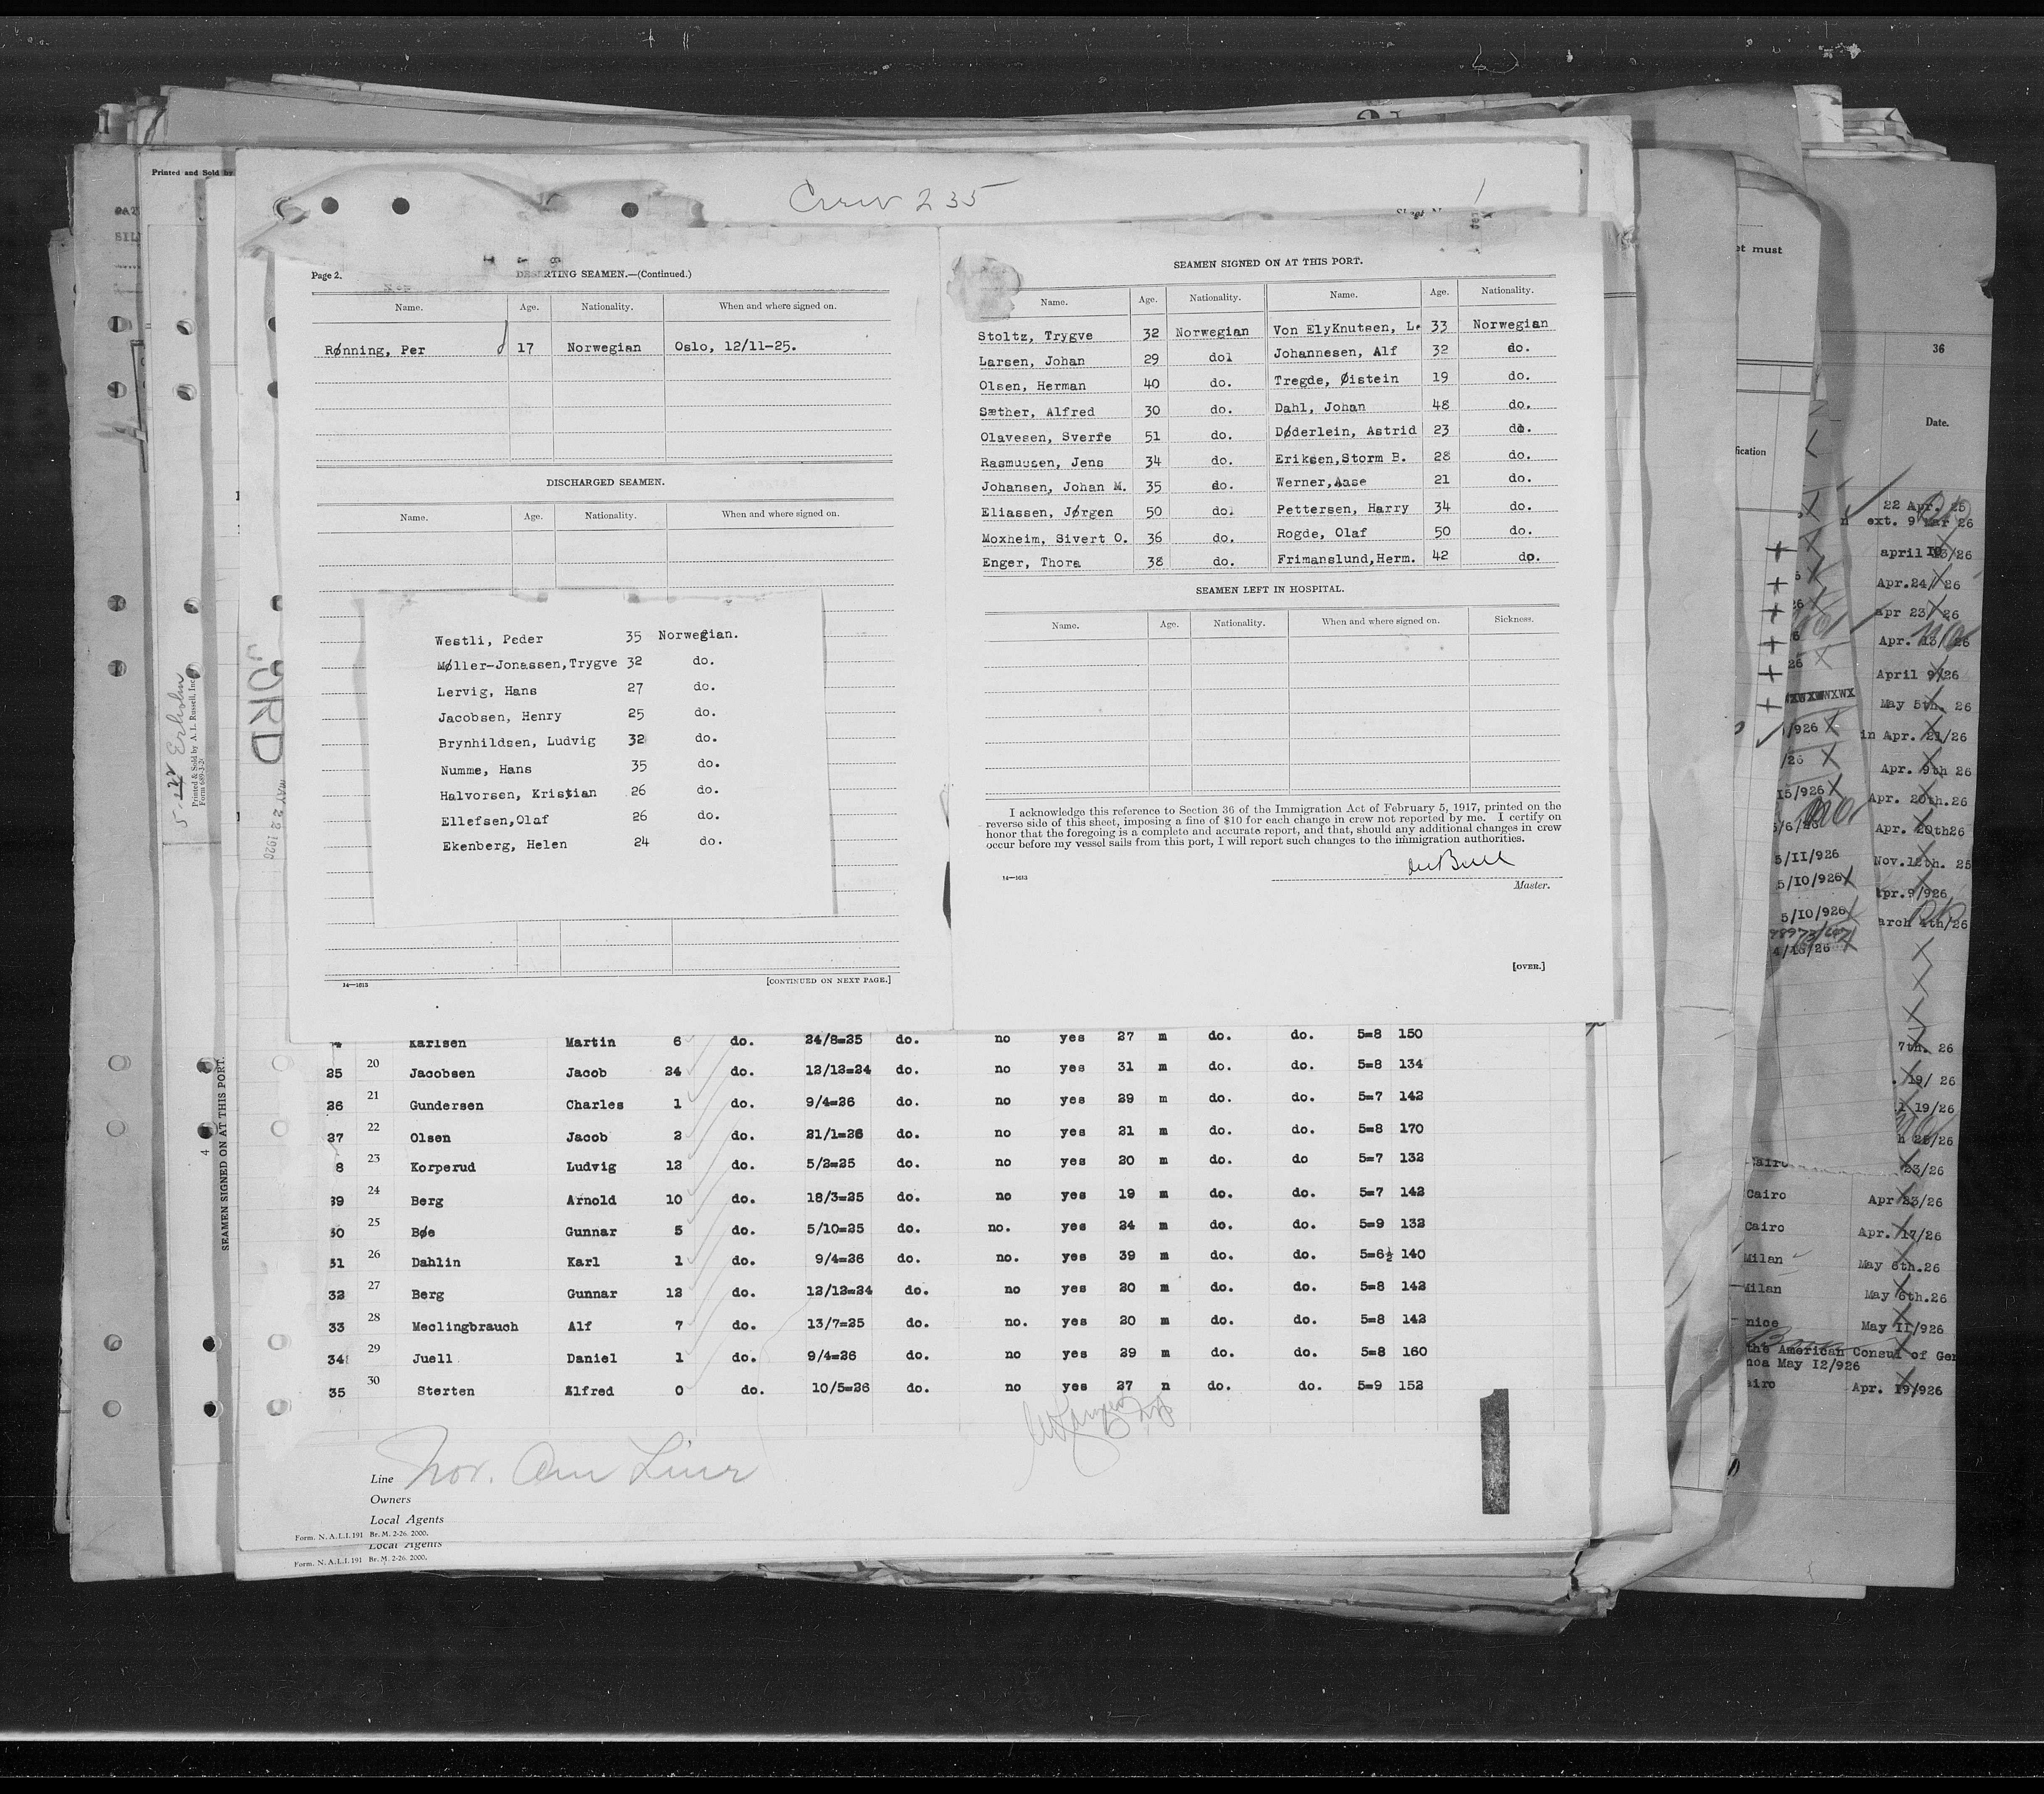 Crew 235
1
Printed and Sold by
Page 2.
DESERTING SEAMEN.—(Continued.)
Name. Age. Nationality. When and where signed on.
Rønning, Per 17 Norwegian Oslo, 12/11-25.
DISCHARGED SEAMEN.
Name. Age. Nationality. When and where signed on.
Westli, Peder 35 Norwegian.
Møller-Jonassen,Trygve 32 do.
Lervig, Hans 27 do.
Jacobsen, Henry 25 do.
Brynhildsen, Ludvig 32 do.
Numme, Hans 35 do.
Halvorsen, Kristian 26 do.
Ellefsen,Olaf 26 do.
Ekenberg, Helen 24 do.
14—1613
[CONTINUED ON NEXT PAGE.]
SEAMEN SIGNED ON AT THIS PORT.
Name. Age. Nationality. Name. Age. Nationality.
Stoltz, Trygve 32 Norwegian Von ElyKnutsen, L. 33 Norwegian
Larsen, Johan 29 do1 Johannesen, Alf 32 do.
Olsen, Herman 40 do. Tregde, Øistein 19 do.
Sæther, Alfred 30 do. Dahl, Johan 48 do.
Olavesen, Sverre 51 do. Døderlein, Astrid 23 do.
Rasmussen, Jens 34 do. Eriksen,Storm B. 28 do.
Johansen, Johan M. 35 do. Werner,Aase 21 do.
Eliassen, Jørgen 50 do1 Pettersen, Harry 34 do.
Moxheim, Sivert O. 36 do. Rogde, Olaf 50 do.
Enger, Thora 38 do. Frimanslund,Herm. 42 do.
SEAMEN LEFT IN HOSPITAL.
Name. Age. Nationality. When and where signed on. Sickness.
I acknowledge this reference to Section 36 of the Immigration Act of February 5, 1917, printed on the
reverse side of this sheet, imposing a fine of $10 for each change in crew not reported by me. I certify on
honor that the foregoing is a complete and accurate report, and that, should any additional changes in crew
occur before my vessel sails from this port, I will report such changes to the immigration authorities.
Master.
14—1613
[OVER.]
Karlsen Martin 6 do. 24/8=25 do. no yes 27 m do. do. 5=8 150
25 20 Jacobsen Jacob 24 do. 12/12=24 do. no yes 31 m do. do. 5=8 134
26 21 Gundersen Charles 1 do. 9/4=26 do. no yes 29 m do. do. 5=7 142
27 22 Olsen Jacob 2 do. 21/1=26 do. no yes 21 m do. do. 5=8 170
8 23 Korperud Ludvig 12 do. 5/2=25 do. no yes 20 m do. do 5=7 132
39 24 Berg Arnold 10 do. 18/3=25 do. no yes 19 m do. do. 5=7 142
30 25 Bøe Gunnar 5 do. 5/10=25 do. no. yes 24 m do. do. 5=9 132
31 26 Dahlin Karl 1 do. 9/4=26 do. no. yes 39 m do. do. 5=6½ 140
32 27 Berg Gunnar 12 do. 12/12=24 do. no yes 20 m do. do. 5=8 142
33 28 Meclingbrauch Alf 7 do. 13/7=25 do. no. yes 20 m do. do. 5=8 142
34 29 Juell Daniel 1 do. 9/4=26 do. no yes 29 m do. do. 5=8 160
35 30 Sterten Alfred 0 do. 10/5=26 do. no yes 27 n do. do. 5=9 152
Line Nor. Am Line
Owners
Local Agents
Form. N. A. L.I. 191 Br. M. 2-26. 2000.
Local Agents
Form. N. A. L.I. 191 Br. M. 2-26. 2000.
Printed & Sold by A. L. Russell, Inc.
SEAMEN SIGNED ON AT THIS PORT.
4
MAY 22 1926
et must
fication
36
Date.
22 Apr. 25
ext. 9 Mar 26
Apr.24/ 26
apr 23/ 26
Apr. 13/ 26
April 9/26
May 5th. 26
in Apr. 21/26
Apr. 9th 26
Apr. 20th.26
Apr. 20th26
Nov.12th. 25
pr.9/926
arch 4th/26
5/11/926
5/10/926
5/10/926
7th. 26
19/ 26
l 19/26
h 22/26
23/26
Cairo Apr 23/26
Cairo Apr. 17/26
Milan May 6th.26
Milan May 6th.26
nice May II/926
the American Consul of Gen
noa May I2/926
airo Apr. I9/926